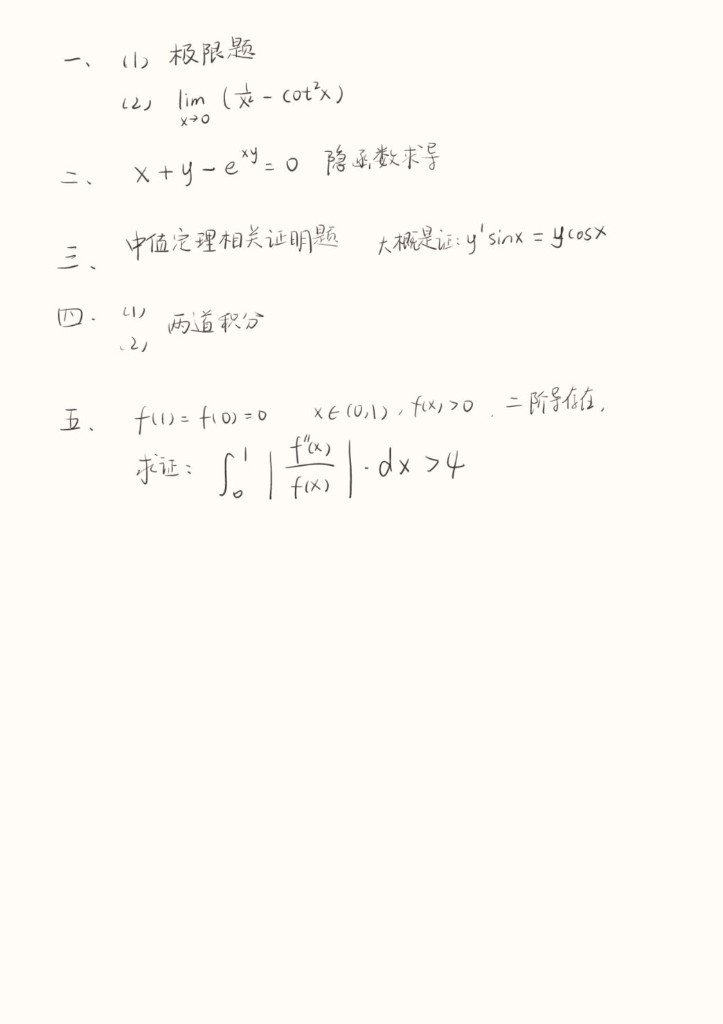 一、 (1) 极限题
(2) lim x→0 (1/x² - cot²x)
二、 x + y - e^xy = 0 隐函数求导
三、 中值定理相关证明题 大概是证: y' sinx = y cosx
四. (1) 两道积分
(2)
五、 f(1) = f(0) = 0 x∈(0,1), f(x) > 0. 二阶导存在,
求证: ∫₀¹ | f''(x) / f(x) | · dx > 4